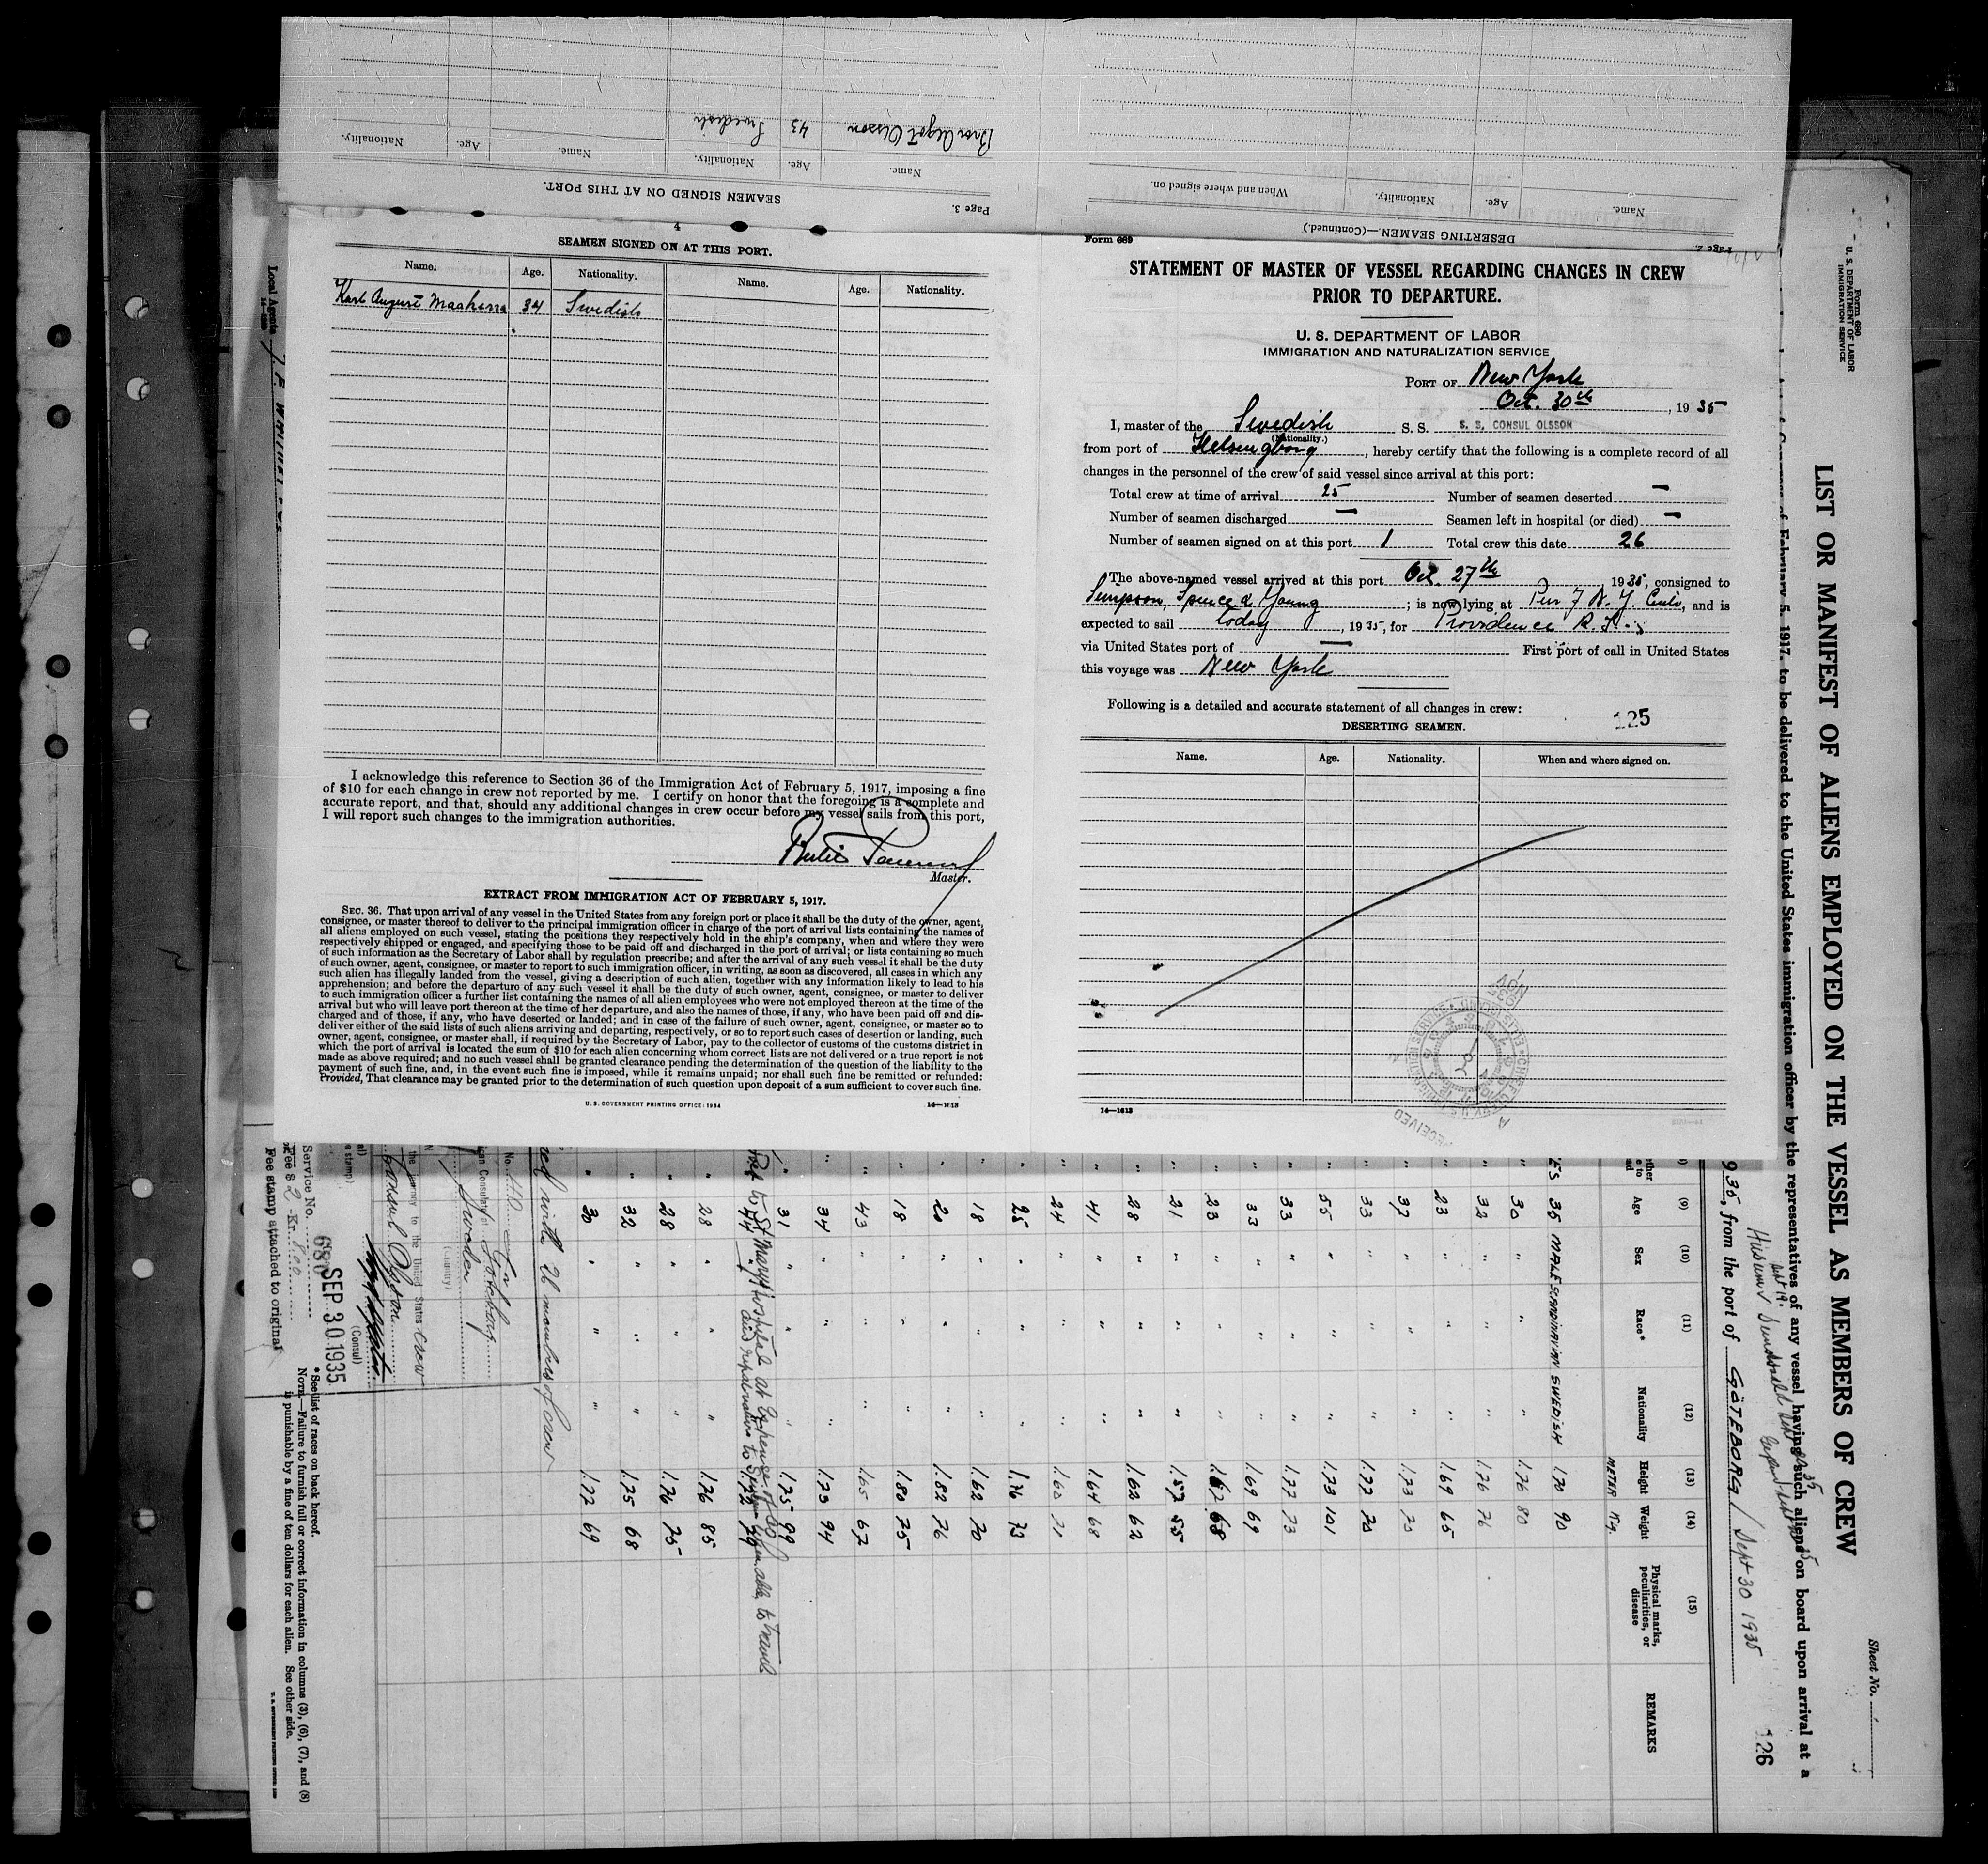 Page 3.
SEAMEN SIGNED ON AT THIS PORT.
Name. Age. Nationality. Name. Age. Nationality.
Olsson 43 Swedish
Page 2.
DESERTING SEAMEN.—(Continued.)
Name. Age. Nationality. When and where signed on.
4
SEAMEN SIGNED ON AT THIS PORT.
Name. Age. Nationality. Name. Age. Nationality.
Karl August 34 Swedish
I acknowledge this reference to Section 36 of the Immigration Act of February 5, 1917, imposing a fine
of $10 for each change in crew not reported by me. I certify on honor that the foregoing is a complete and
accurate report, and that, should any additional changes in crew occur before my vessel sails from this port,
I will report such changes to the immigration authorities.
Master.
EXTRACT FROM IMMIGRATION ACT OF FEBRUARY 5, 1917.
SEC. 36. That upon arrival of any vessel in the United States from any foreign port or place it shall be the duty of the owner, agent,
consignee, or master thereof to deliver to the principal immigration officer in charge of the port of arrival lists containing the names of
all aliens employed on such vessel, stating the positions they respectively hold in the ship's company, when and where they were
respectively shipped or engaged, and specifying those to be paid off and discharged in the port of arrival; or lists containing so much
of such information as the Secretary of Labor shall by regulation prescribe; and after the arrival of any such vessel it shall be the duty
of such owner, agent, consignee, or master to report to such immigration officer, in writing, as soon as discovered, all cases in which any
such alien has illegally landed from the vessel, giving a description of such alien, together with any information likely to lead to his
apprehension; and before the departure of any such vessel it shall be the duty of such owner, agent, consignee, or master to deliver
to such immigration officer a further list containing the names of all alien employees who were not employed thereon at the time of the
arrival but who will leave port thereon at the time of her departure, and also the names of those, if any, who have been paid off and dis-
charged and of those, if any, who have deserted or landed; and in case of the failure of such owner, agent, consignee, or master so to
deliver either of the said lists of such aliens arriving and departing, respectively, or so to report such cases of desertion or landing, such
owner, agent, consignee, or master shall, if required by the Secretary of Labor, pay to the collector of customs of the customs district in
which the port of arrival is located the sum of $10 for each alien concerning whom correct lists are not delivered or a true report is not
made as above required; and no such vessel shall be granted clearance pending the determination of the question of the liability to the
payment of such fine, and, in the event such fine is imposed, while it remains unpaid; nor shall such fine be remitted or refunded:
Provided, That clearance may be granted prior to the determination of such question upon deposit of a sum sufficient to cover such fine.
U. S. GOVERNMENT PRINTING OFFICE: 1934 14—1613
Form 689
STATEMENT OF MASTER OF VESSEL REGARDING CHANGES IN CREW
PRIOR TO DEPARTURE.
U. S. DEPARTMENT OF LABOR
IMMIGRATION AND NATURALIZATION SERVICE
PORT OF New York
Oct. 30th, 1935
I, master of the Swedish S. S. S. S. CONSUL OLSSON
(Nationality.)
from port of Helsingborg, hereby certify that the following is a complete record of all
changes in the personnel of the crew of said vessel since arrival at this port:
Total crew at time of arrival 25 Number of seamen deserted —
Number of seamen discharged — Seamen left in hospital (or died) —
Number of seamen signed on at this port 1 Total crew this date 26
The above-named vessel arrived at this port Oct. 27th, 1935, consigned to
Simpson, Spence & Young; is now lying at Pier 7 N. Y., and is
expected to sail today, 1935, for Providence R. I.
via United States port of — First port of call in United States
this voyage was New York
Following is a detailed and accurate statement of all changes in crew:
125
DESERTING SEAMEN.
Name. Age. Nationality. When and where signed on.
RECEIVED
14—1613
Form 680
U. S. DEPARTMENT OF LABOR
IMMIGRATION SERVICE
Sheet No.
LIST OR MANIFEST OF ALIENS EMPLOYED ON THE VESSEL AS MEMBERS OF CREW
of February 5, 1917, to be delivered to the United States immigration officer by the representatives of any vessel having such aliens on board upon arrival at a
935, from the port of GÖTEBORG / Sept 30 1935
126
(9) (10) (11) (12) (13) (14) (15)
Age Sex Race* Nationality Height Weight Physical marks, peculiarities, or disease REMARKS
METER Kg.
YES 35 MALE SCANDINAVIAN SWEDISH 1.70 90
" 30 " " " 1.76 80
" 32 " " " 1.76 76
" 23 " " " 1.69 65
" 37 " " " 1.73 73
" 33 " " " 1.77 70
" 55 " " " 1.73 101
" 33 " " " 1.77 73
" 33 " " " 1.69 69
" 23 " " " 1.67 68
" 21 " " " 1.57 55
" 28 " " " 1.62 62
" 41 " " " 1.64 68
" 24 " " " 1.60 71
" 25 " " " 1.76 73
" 18 " " " 1.62 70
" 20 " " " 1.82 76
" 18 " " " 1.80 75
" 43 " " " 1.65 67
" 34 " " " 1.73 94
" 31 " " " 1.75 99
to St Marys Hospital at Expense of
and repatriation to Sweden when able to travel
" 28 " " " 1.76 85
" 28 " " " 1.76 75
" 32 " " " 1.75 68
" 30 " " " 1.77 69
with 26 members of crew
Göteborg
Sweden
(country)
the journey to the United States Crew
Consul Olsson
(Consul)
SEP 30 1935
Service No. 680
Fee $ 2 -Kr.
Fee stamp attached to original
* See list of races on back hereof.
NOTE.—Failure to furnish full or correct information in columns (3), (6), (7), and (8)
is punishable by a fine of ten dollars for each alien. See other side.
Local Agents